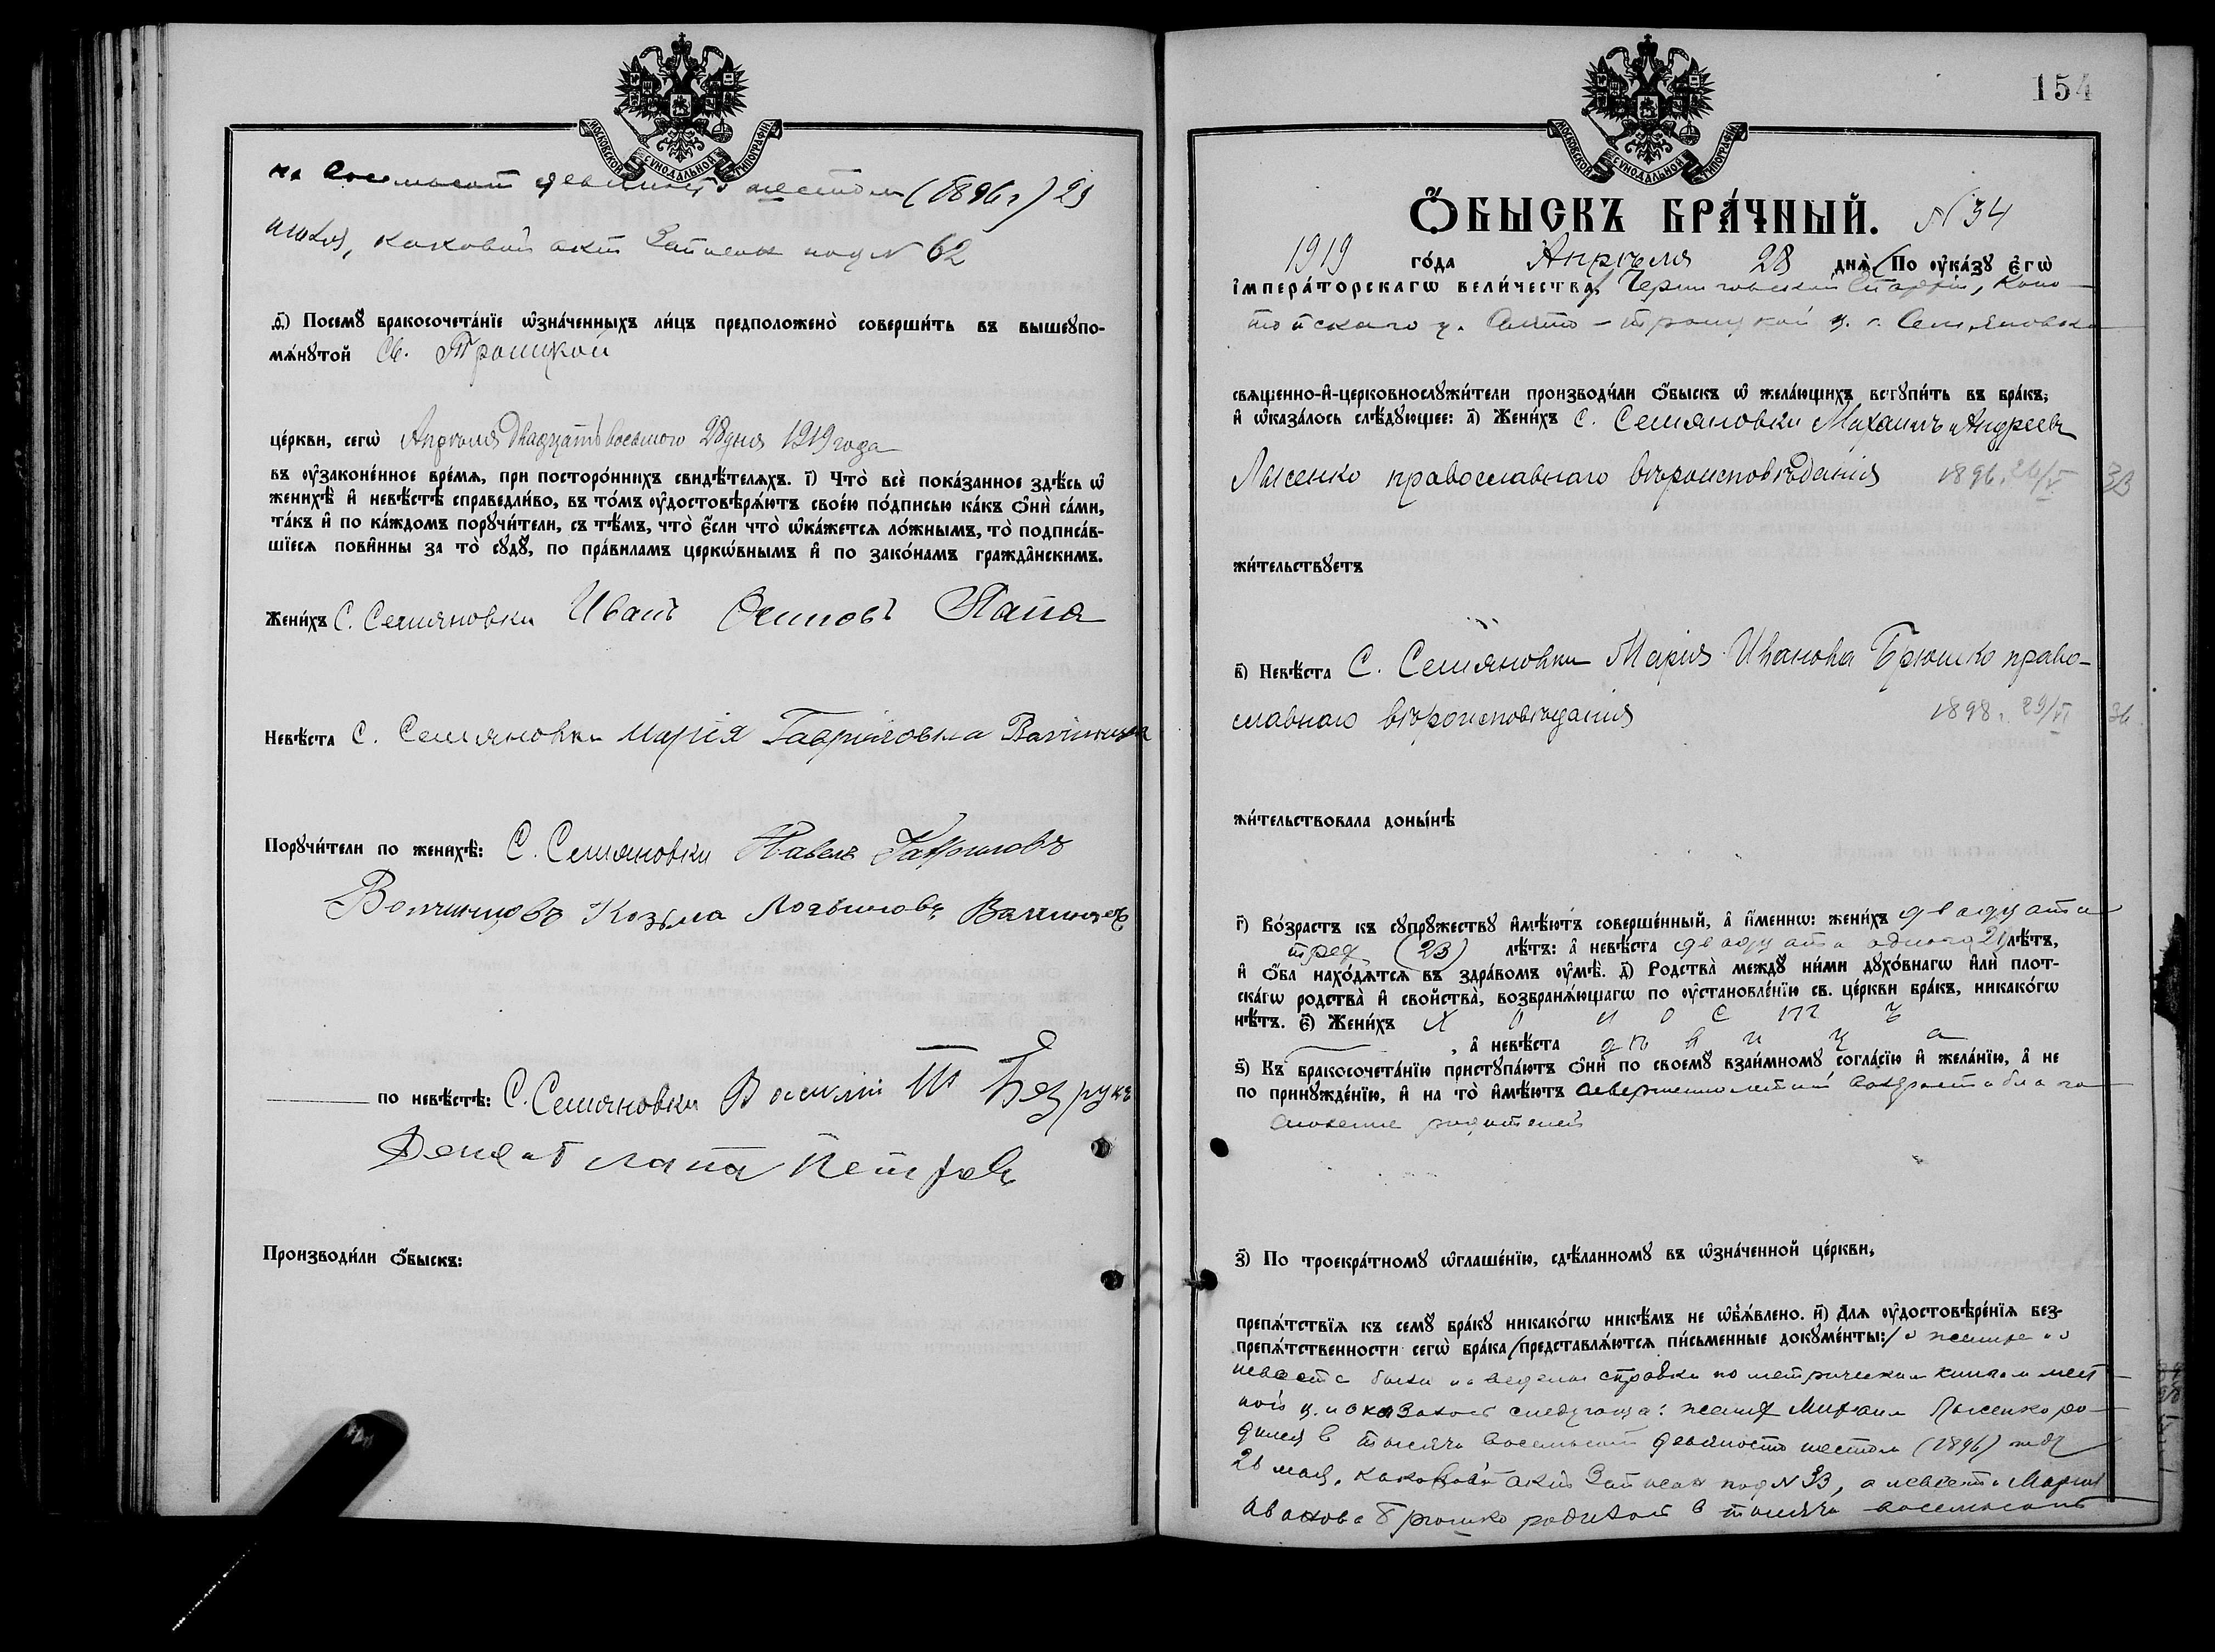 МОСКОВСКОЙ СѴНОДАЛЬНОЙ ТИПОГРАФІИ
девяносто шестом (1896 г) 29
июля, каковой акт записан под N 62
Посемꙋ бракосочета́нїе ѡ҆зна́ченныхъ ли́цъ предположено̀ соверши́ть въ вышеꙋпо-
мѧ́нꙋтой Св. Троицкой
це́ркви, сегѡ̀ Апрѣля двадцать восьмого 28 дня 1919 года
въ ᲂу҆зако́ненное вре́мѧ, при посторо́ннихъ свидѣ́телѧхъ. і҃) Что̀ всѐ пока́занное здѣ́сь ѡ҆
женихѣ̀ и҆ невѣ́стѣ справедли́во, въ то́мъ ᲂу҆достовѣрѧ́ютъ свое́ю по́дписью ка́къ ѻ҆нѝ са́ми,
та́къ и҆ по ка́ждомъ порꙋчи́тели, съ тѣ́мъ, что̀ є҆́сли что̀ ѡ҆ка́жетсѧ ло́жнымъ, то̀ подписа́в-
шїесѧ пови́нны за то̀ сꙋдꙋ̀, по пра́виламъ церкѡ́внымъ и҆ по зако́намъ гражда́нскимъ.
Жени́хъ С. Семяновки Иванъ Осиповъ Лапа
Невѣ́ста С. Семяновки Марія Гавриловна
Порꙋчи́тели по женихѣ̀: С. Семяновки Павелъ Гавриловъ
Козьма
по невѣ́стѣ: С. Семяновки Василий Безрукъ
лапа Петровъ
Производи́ли ѻ҆́быскъ:
154
МОСКОВСКОЙ СѴНОДАЛЬНОЙ ТИПОГРАФІИ
Ѻ҆́БЫСКЪ БРА́ЧНЫЙ. N 34
1919 го́да Апрѣля 28 днѧ̀ (По ᲂу҆ка́зꙋ є҆гѡ̀
і҆мпера́торскагѡ вели́чества) Черниговской Епархіи, Коно-
топскаго у. Свято-Троицкой ц. с. Семяновки
свѧще́нно-и҆-церковнослꙋжи́тели производи́ли ѻ҆́быскъ ѡ҆ жела́ющихъ встꙋпи́ть въ бра́къ,
и҆ ѡ҆каза́лось слѣ́дꙋющее: а҃) Жени́хъ С. Семяновки Михаилъ Андреевъ
Лысенко православнаго вѣроисповѣданія 1896. 26/V 33
жи́тельствꙋетъ
в҃) Невѣ́ста С. Семяновки Марія Иванова Брюшко право-
славнаго вѣроисповѣданія 1898. 29/VI 36.
жи́тельствовала доны́нѣ
г҃) Во́зрастъ къ сꙋпрꙋ́жествꙋ и҆мѣ́ютъ соверше́нный, а҆ и҆́меннѡ: жени́хъ двадцати
трех (23) лѣ́тъ: а҆ невѣ́ста двадцати одного 21 лѣ́тъ,
и҆ ѻ҆́ба нахо́дѧтсѧ въ здра́вомъ ᲂу҆мѣ̀. д҃) Родства̀ междꙋ̀ ни́ми дꙋхо́внагѡ и҆лѝ пло́т-
скагѡ родства̀ и҆ сво́йства̀, возбранѧ́ющагѡ по ᲂу҆становле́нїю св. це́ркви бра́къ, никако́гѡ
нѣ́тъ. є҃) Жени́хъ холостъ
, а҆ невѣ́ста дѣвица
ѕ҃) Къ бракосочета́нїю пристꙋпа́ютъ ѻ҆нѝ по своемꙋ̀ взаи́мномꙋ согла́сїю и҆ жела́нїю, а҆ не
по принꙋжде́нїю, и҆ на то̀ и҆мѣ́ютъ совершеннолетний возраст и благо-
словение родителей
з҃) По троекра́тномꙋ ѡ҆глаше́нїю, сдѣ́ланномꙋ въ ѡ҆зна́ченной це́ркви,
препѧ́тствїѧ къ семꙋ̀ бра́кꙋ никако́гѡ никѣ́мъ не ѡ҆б̾ѧ́влено. и҃) Длѧ ᲂу҆достовѣре́нїѧ без-
препѧ́тственности сегѡ̀ бра́ка (представлѧ́ютсѧ пи́сьменные докꙋме́нты:) о женихе и о
невесте были наведены справки по метрическим книгам мест-
ной ц. и оказалось следующа: жених Михаил Лысенко ро-
дился в тысяча восемьсот девяносто шестом (1896) году
26 мая, каковой акт записан под N 33, а невеста Мария
Иванова Брюшко родилась в тысяча восемьсот